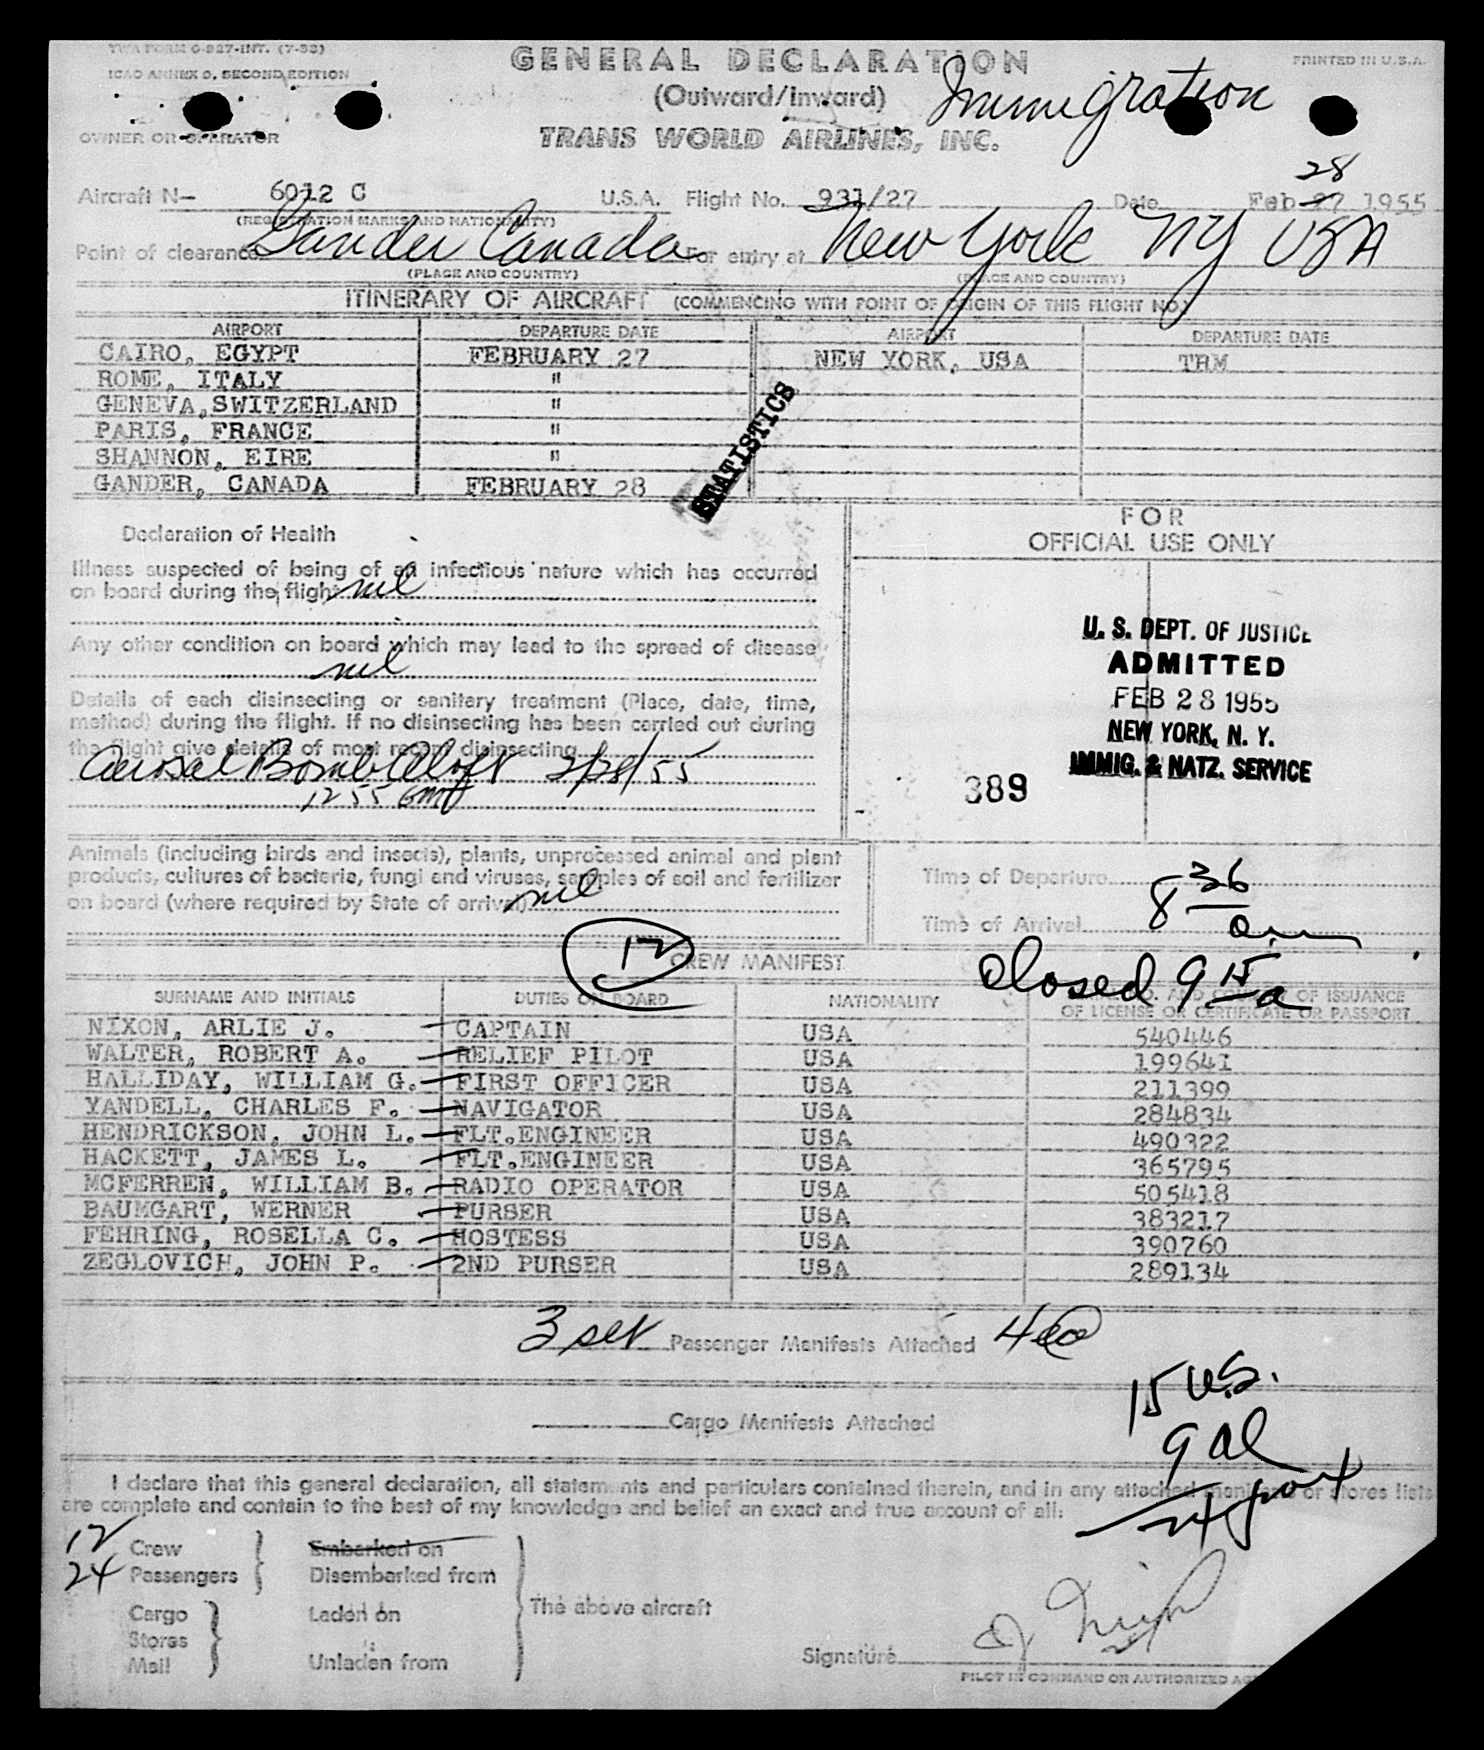 TWA FORM O-827-INT. (7-53)
ICAO ANNEX 9, SECOND EDITION
PRINTED IN U.S.A.
GENERAL DECLARATION
(Outward/Inward)
Immigration
OWNER OR OPERATOR
TRANS WORLD AIRLINES, INC.
28
Aircraft N- 6012 C U.S.A. Flight No. 931/27 Date Feb 27 1955
(REGISTRATION MARKS AND NATIONALITY)
Point of clearance Gander Canada For entry at New York NY USA
(PLACE AND COUNTRY) (PLACE AND COUNTRY)
ITINERARY OF AIRCRAFT (COMMENCING WITH POINT OF ORIGIN OF THIS FLIGHT NO.)
AIRPORT DEPARTURE DATE AIRPORT DEPARTURE DATE
CAIRO, EGYPT FEBRUARY 27 NEW YORK, USA TRM
ROME, ITALY "
GENEVA,SWITZERLAND "
PARIS, FRANCE "
SHANNON, EIRE "
GANDER, CANADA FEBRUARY 28
STATISTICS
Declaration of Health
Illness suspected of being of an infectious nature which has occurred
on board during the flight nil
Any other condition on board which may lead to the spread of disease
nil
Details of each disinsecting or sanitary treatment (Place, date, time,
method) during the flight. If no disinsecting has been carried out during
the flight give details of most recent disinsecting
Aerosol Bomb Aloft 2/28/55
1255 GMT
FOR
OFFICIAL USE ONLY
U. S. DEPT. OF JUSTICE
ADMITTED
FEB 28 1955
NEW YORK, N. Y.
IMMIG. & NATZ. SERVICE
389
Animals (including birds and insects), plants, unprocessed animal and plant
products, cultures of bacteria, fungi and viruses, samples of soil and fertilizer
on board (where required by State of arrival) nil
Time of Departure
Time of Arrival 8 36 am
12
CREW MANIFEST
closed 9 15 a
SURNAME AND INITIALS DUTIES ON BOARD NATIONALITY OF ISSUANCE
OF LICENSE OR CERTIFICATE OR PASSPORT
NIXON, ARLIE J. CAPTAIN USA 540446
WALTER, ROBERT A. RELIEF PILOT USA 199641
HALLIDAY, WILLIAM G. FIRST OFFICER USA 211399
YANDELL, CHARLES F. NAVIGATOR USA 284834
HENDRICKSON, JOHN L. FLT.ENGINEER USA 490322
HACKETT, JAMES L. FLT.ENGINEER USA 365795
MCFERREN, WILLIAM B. RADIO OPERATOR USA 505418
BAUMGART, WERNER PURSER USA 383217
FEHRING, ROSELLA C. HOSTESS USA 390760
ZEGLOVICH, JOHN P. 2ND PURSER USA 289134
3 set Passenger Manifests Attached
15 U.S.
Cargo Manifests Attached
9 al
I declare that this general declaration, all statements and particulars contained therein, and in any attached manifests or stores lists
are complete and contain to the best of my knowledge and belief an exact and true account of all:
24
12 Crew Embarked on
24 Passengers Disembarked from
The above aircraft
Cargo Laden on
Stores
Mail Unladen from
Signature
PILOT IN COMMAND OR AUTHORIZED